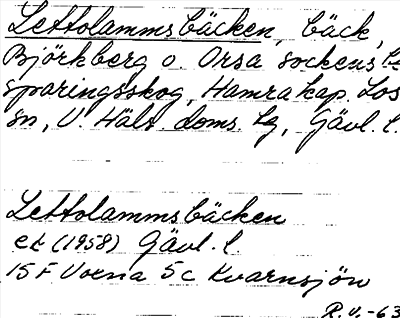 Lettolammsbäcken, bäck,
Björkberg o. Orsa sockens be
sparingsskog, Hamra kap. Los
sn, V. Häls. doms. lg, Gävl. l.
Lettolammsbäcken
ek (1958) Gävl. l.
15 F Voxna 5c Kvarnsjön
R.V.-63